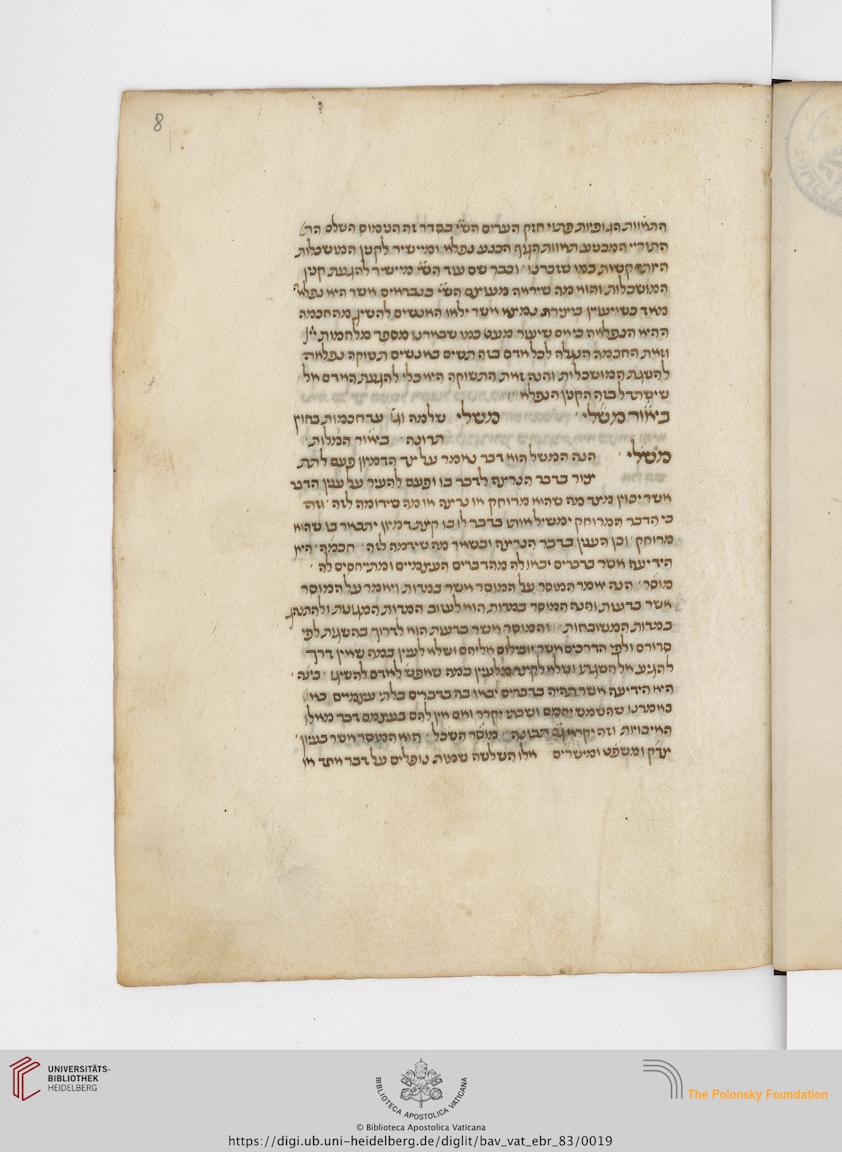 8
התאוות הגופיות פתוי חזק הערים הש״י בסדר זה הנימוס השלם הז׳
התוריי המבטע תאוות הגוף הכנע נפלא ומיישיר לקנין המושכלות
היותם קשות כמו שזכרנו וכבר שם עוד הש״י מיישיר להגעת קנין
המושכלות והוא מה שיראה מענינם הש״י בנבראים אשר היא נפלא׳
מאד כשיעויין ביצירת נמצא אשר ילאו האנשים להשיג מהחכמה
ההיא הנפלאה ביאם שיעור מעט כמו שביארנו מספר מלחמות י״י
וזאת החכמה הנגלה לכל אדם בזה תשים באנשים תשוקה נפלאה
להשגת המושכלות והנה זאת התשוקה היא כלי להגעת האדם אל
שישתדל בזה הקנין הנפלא
ביאור משלי משלי שלמה וגו׳ עד חכמות בחוץ
תרונה ביאור המלות
משלי הנה המשל הוא דבר נאמר על צד הדמיון פעם לתת
ציור בדבר הנרצה לדבר בו ופעם להעיר על ענין הדבר
אשר יכוין מצד מה שהוא מרוחק או נרצה או מה שידומה לזה וזה
כי הדבר המרוחק ימשיל אותו בדבר לו בו קצת דמיון יתבאר בו שהוא
מרוחק וכן הענין בדבר הנרצה ובשאר מה שידמה לזה חכמה היא
הידיעה אשר בדברים יבאו לה מהדברים העצמיים ומתיחסים לה
מוסר הנה יאמר המוסר על המוסר אשר במדות ויאמר על המוסר
אשר בדעות והנה המוסר במדות הוא לעזוב המדות המגונות ולהתנהג
במדות המשובחות והמוסר אשר בדעות הוא לדרוך בהשגות לפי
סדורם ולפי הדרכים אשר יובילום אליהם ושלא לעיין במה שאין דרך
להגיע אל השגתו ושלא לקצר מלעיין במה שאפש׳ לאדם להשיגו בינה
היא הידיעה אשר תהיה בדברים יבאו בה בדברים בלתי עצמיים כאו׳
באמרנו שהשמש יחמם ושבתי יקרר ואם אין להם בעצמם דבר מאלו
האיכויות וזה יקרא גם תבונה מוסר השכל הוא המוסר אשר בעיון
צדק ומשפט ומישרים אלו השלשה שמות נופלים על דבר אחד או
UNIVERSITÄTS-
BIBLIOTHEK
HEIDELBERG
BIBLIOTHECA APOSTOLICA VATICANA
The Polonsky Foundation
© Biblioteca Apostolica Vaticana
https://digi.ub.uni-heidelberg.de/diglit/bav_vat_ebr_83/0019